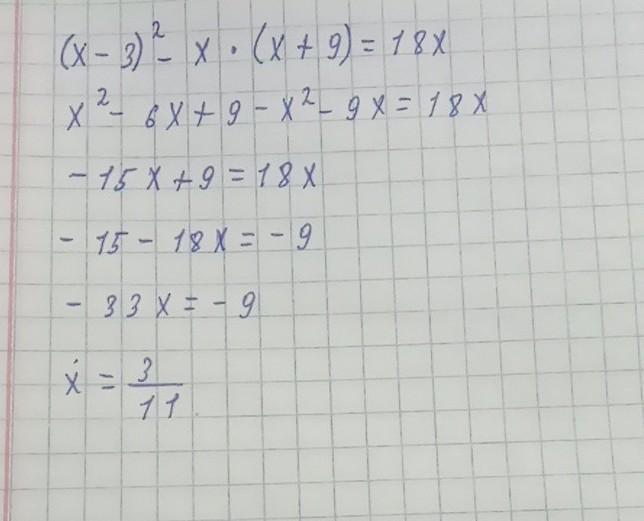 (x - 3)² - x · (x + 9) = 18x
x² - 6x + 9 - x² - 9x = 18x
- 15x + 9 = 18x
- 15 - 18x = - 9
- 33x = - 9
x = 3/11